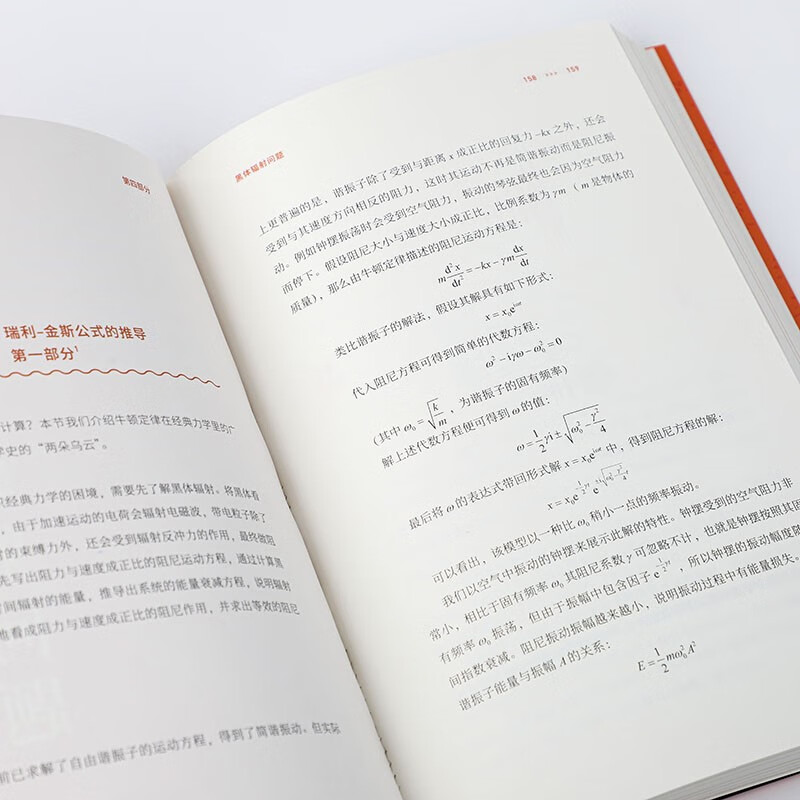 第四部分
瑞利-金斯公式的推导
第一部分¹
计算？本节我们介绍牛顿定律在经典力学里的广
学史的“两朵乌云”。
经典力学的困境，需要先了解黑体辐射。将黑体看
，由于加速运动的电荷会辐射电磁波，带电粒子除了
的束缚力外，还会受到辐射反冲力的作用，最终做阻
先写出阻力与速度成正比的阻尼运动方程，通过计算黑
时间辐射的能量，推导出系统的能量衰减方程，说明辐射
地看成阻力与速度成正比的阻尼作用，并求出等效的阻尼
前已求解了自由谐振子的运动方程，得到了简谐振动。但实际
158 159
黑体辐射问题
上更普遍的是，谐振子除了受到与距离 x 成正比的回复力 -kx 之外，还会
受到与其速度方向相反的阻力，这时其运动不再是简谐振动而是阻尼振
动。例如钟摆振荡时会受到空气阻力，振动的琴弦最终也会因为空气阻力
而停下。假设阻尼大小与速度大小成正比，比例系数为 γm（m 是物体的
质量），那么由牛顿定律描述的阻尼运动方程是：
m d²x/dt² = -kx - γm dx/dt
类比谐振子的解法，假设其解具有如下形式：
x = x₀e^{iωt}
代入阻尼方程可得到简单的代数方程：
ω² - iγω - ω₀² = 0
（其中 ω₀ = √(k/m)，为谐振子的固有频率）
解上述代数方程便可得到 ω 的值：
ω = 1/2 γi ± √(ω₀² - γ²/4)
最后将 ω 的表达式带回形式解 x = x₀e^{iωt} 中，得到阻尼方程的解：
x = x₀e^{-1/2 γt} e^{±i√(ω₀² - γ²/4) t}
可以看出，该模型以一种比 ω₀ 稍小一点的频率振动。
我们以空气中振动的钟摆来展示此解的特性。钟摆受到的空气阻力非
常小，相比于固有频率 ω₀ 其阻尼系数 γ 可忽略不计，也就是钟摆按照其固
有频率 ω₀ 振荡，但由于振幅中包含因子 e^{-1/2 γt}，所以钟摆的振动幅度随
间指数衰减。阻尼振动振幅越来越小，说明振动过程中有能量损失。
谐振子能量与振幅 A 的关系：
E = 1/2 mω₀²A²